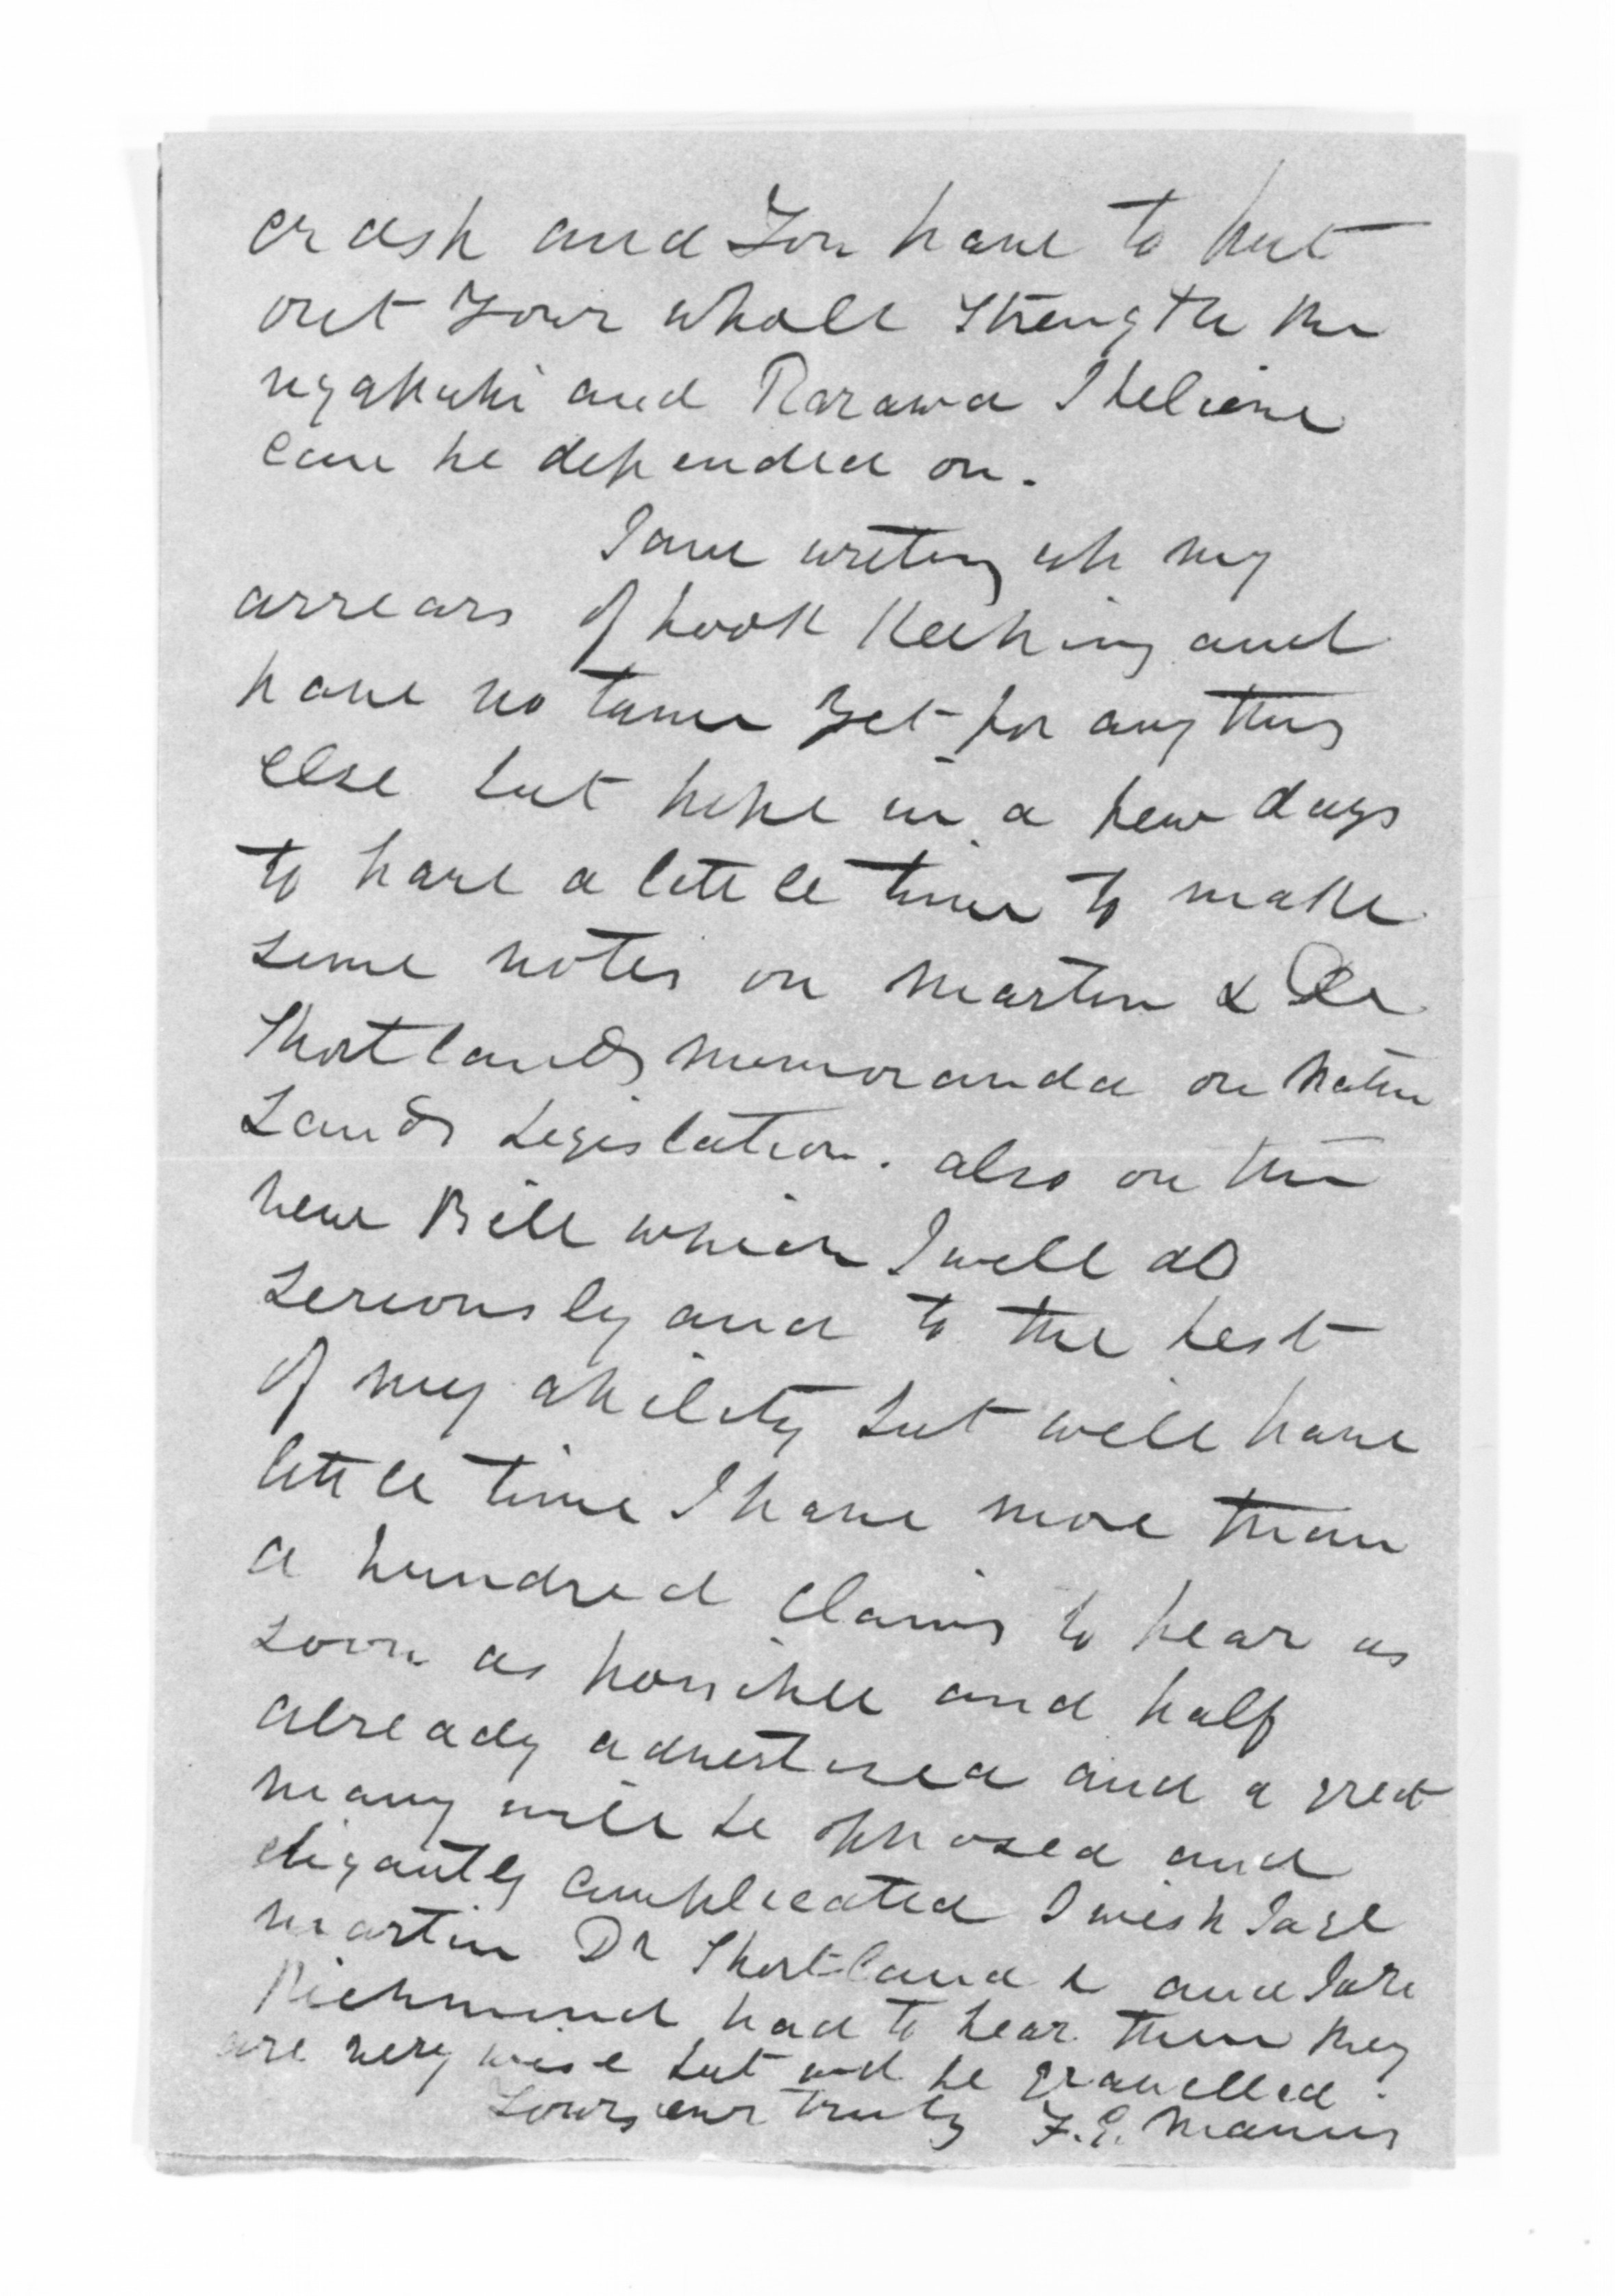 crash and You have to put
out Your whole Strength the
ngapuhi and Rarawa I believe
can be depended on.
I am writing up my
arrears of book Keeping and
have no time Yet for any thing
else but hope in a few days
to have a little time to make
some notes on Martin & Dr
Shortlands memoranda on Native
Lands Legislation. also on the
new Bill which I will do
seriously and to the best
of my ability but will have
little time I have more than
a hundred claims to hear as
soon as possible and half
already advertised and a great
many will be opposed and
elegantly complicated I wish
Martin Dr Shortland & and
Richmond had to hear them they
are very wise but wd be gravelled.
Yours ever truly F.E. Maning